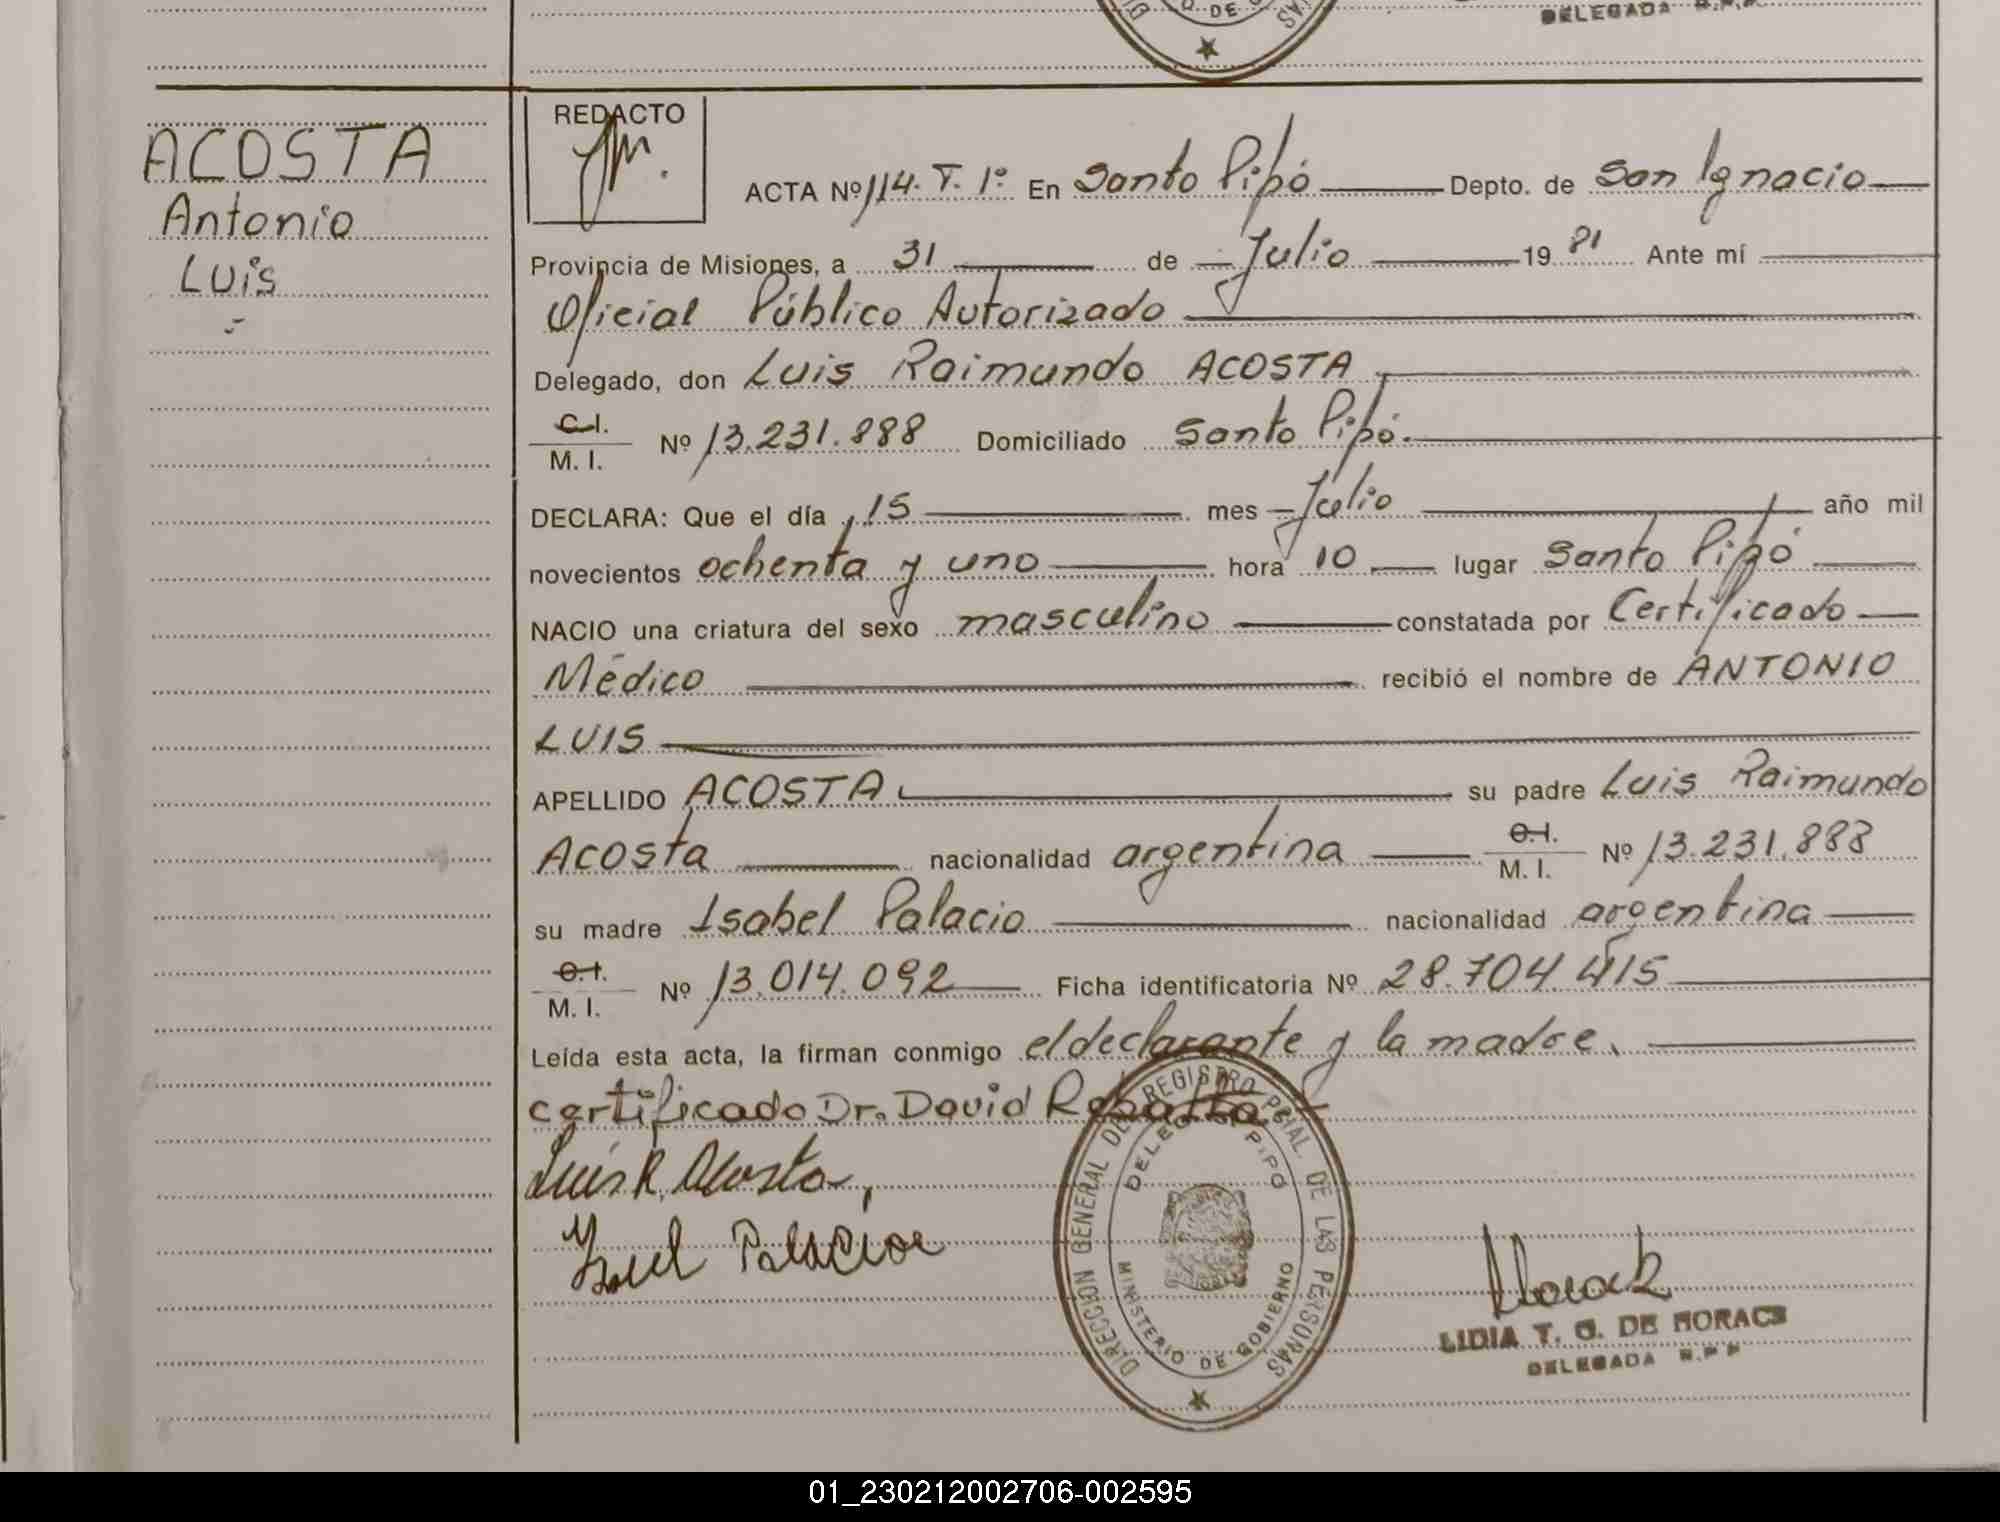 DELEGADA R.P.P.
ACOSTA
Antonio
Luis
REDACTO
ACTA Nº 114. T. 1º En Santo Pipó Depto. de San Ignacio
Provincia de Misiones, a 31 de Julio 1981 Ante mí
Oficial Público Autorizado
Delegado, don Luis Raimundo ACOSTA
C.I.
M. I. Nº 13.231.888 Domiciliado Santo Pipó.
DECLARA: Que el día 15 mes Julio año mil
novecientos ochenta y uno hora 10 lugar Santo Pipó
NACIO una criatura del sexo masculino constatada por Certificado
Médico recibió el nombre de ANTONIO
LUIS
APELLIDO ACOSTA su padre Luis Raimundo
Acosta nacionalidad argentina C.I. M. I. Nº 13.231.888
su madre Isabel Palacio nacionalidad argentina
C.I.
M. I. Nº 13.014.092 Ficha identificatoria Nº 28.704.415
Leída esta acta, la firman conmigo el declarante y la madre.
certificado Dr. David
Luis R. Acosta,
DIRECCION GENERAL DE REGISTRO PCIAL. DE LAS PERSONAS
MINISTERIO DE GOBIERNO
LIDIA T. G. DE HORACZ
DELEGADA R.P.P.
01_230212002706-002595